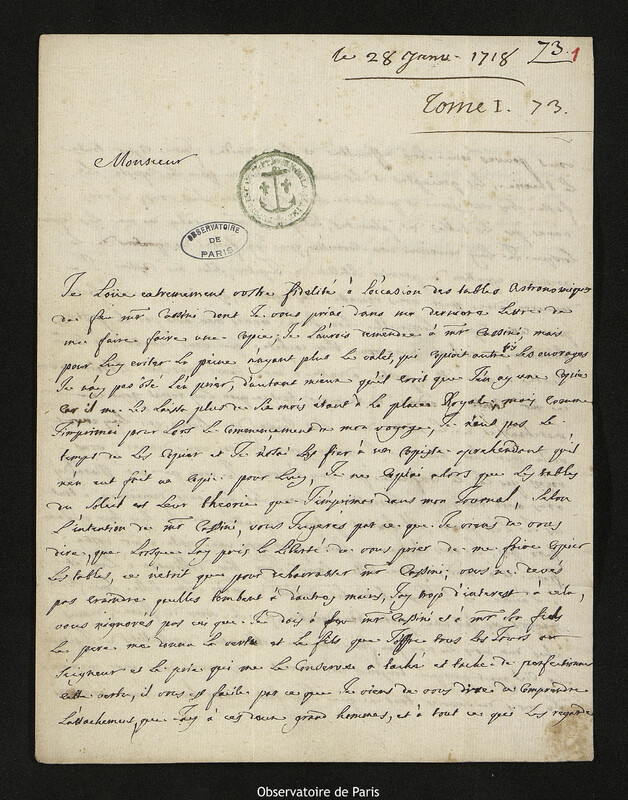 le 28 Janv. 1718 73. 1
Tome I. 73.
Monsieur
OBSERVATOIRE
DE
PARIS
Je Loüe extremement vostre fidelité à l'occasion des tables Astronomiques
de feu mr Cassini dont Je vous priai dans ma derniere Lettre de
me faire faire une copie; Je L'aurois demandée à mr Cassini, mais
pour Luy eviter La peine n'ayant plus Le valet, qui copioit autre fois les ouvrages
Je n'ay pas osé L'en prier, d'autant mieux qu'il croit que J'en ay une copie
car il me Les Laissa plus de six mois étant à La place Royal, mais comme
J'imprimai pour Lors Le commencement de mon voyage, Je n'eut pas Le
temps de Les copier et Je n'osai Les fier à un copiste aprehendant qu'il
n'en eut fait une copie pour Luy, Je ne copiai alors que Les tables
du Soleil et Leur theorie que J'imprimai dans mon Journal, Selon
L'intention de mr Cassini, vous Jugeres par ce que Je viens de vous
dire, que Lorsque J'ay pris La Liberté de vous prier de me faire copier
Les tables, ce n'etoit que pour debarasser mr Cassini, vous ne devés
pas craindre qu'elles tombent à d'autres mains, J'ay trop d'interest à cela,
vous n'ignorés pas ce que Je dois à feu mr Cassini et à mr son fils
Le pere me donna La vertu et Le fils que J'offre tous Les Jours au
Seigneur et Le prie qui me Le Conserve a taché et tache de perfectionner
cette vertu, il vous est facile par ce que Je viens de vous dire de comprendre
L'attachement, que J'ay à ces deux grand hommes, et à tout ce qui Les regarde
Observatoire de Paris